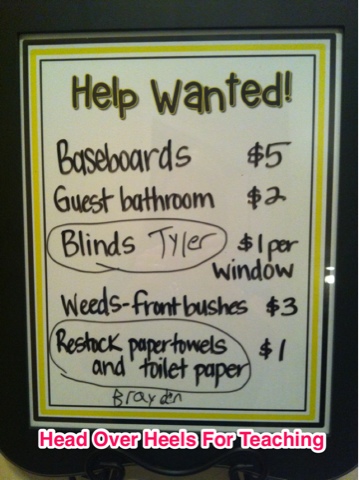 Help Wanted!
Baseboards $5
Guest bathroom $2
Blinds Tyler $1 per
window
Weeds-front bushes $3
Restock papertowels $1
and toilet paper
Brayden
Head Over Heels For Teaching